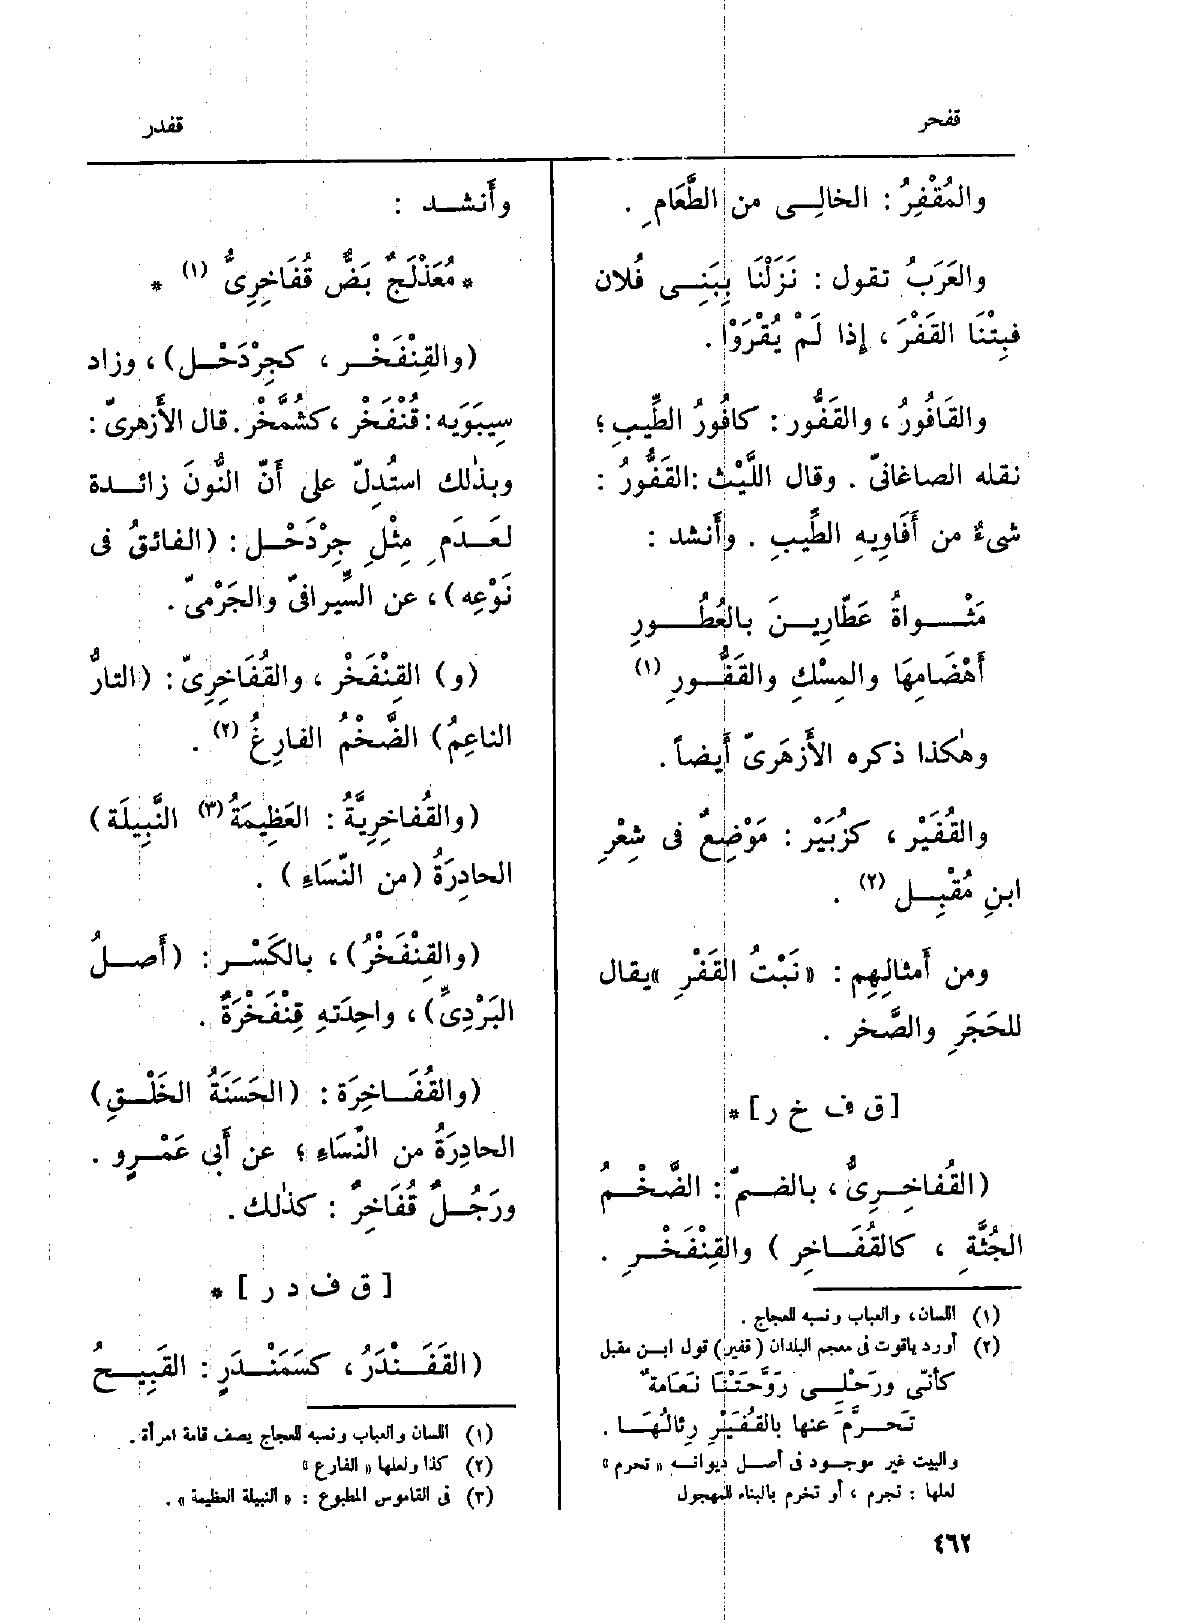 قفحر
قفدر
والمُقْفِرُ : الخالِــى من الطَّعَامِ .
والعَرَبُ تقول : نَزَلْنَا بِبَنِــى فُلان
فبِتْنَا القَفْرَ ، إذا لَمْ يُقْرَوْا .
والقَافُورُ ، والقَفُّور : كافُورُ الطِّيبِ ؛
نقله الصاغانىّ . وقال اللَّيْث : القَفُّورُ :
شىءٌ من أَفَاوِيهِ الطِّيبِ . وأَنشد :
مَثْــواةُ عَطّارِيــنَ بالعُطُــورِ
أَهْضَامِهَا والمِسْكِ والقَفُّــورِ (١)
وهٰكذا ذكره الأَزهَرىّ أَيضاً .
والقُفَيْر ، كزُبَيْر : مَوْضِعٌ فى شِعْرِ
ابنِ مُقْبِــل (٢) .
ومن أَمثالِهِم : « نَبْتُ القَفْرِ » يقال
للحَجَرِ والصَّخر .
[ ق ف خ ر ] *
( القُفاخِــرِىُّ ، بالضــمّ : الضَّخْــمُ
الجُثَّةِ ، كالقُفَــاخِر ) والقِنْفَخْــرِ .
(١) اللسان ، والعباب ونسبه للعجاج .
(٢) أورد ياقوت فى معجم البلدان ( قفير ) قول ابــن مقبل
كأنّى ورَحْلِــى رَوَّحَتْنَا نَعَامَةٌ
تَحــرَّمَ عنها بالقُفَيْرِ رِئالُهَــا .
والبيت غير موجــود فى أصــل ديوانــه « تحرم »
لعلها : تجرم ، أو تخرم بالبناء للمجهول
وأَنشــد :
* مُعَذْلَجٌ بَضٌّ قُفَاخِرِىُّ (١) *
( والقِنْفَخْــر ، كجِرْدَحْــل ) ، وزاد
سِيبَوَيه : قُنْفَخْر ، كشُمَّخْر . قال الأَزهرىّ :
وبذٰلك استُدِلّ على أَنّ النُّونَ زائــدة
لعَــدَمِ مِثْلِ جِرْدَحْــل : ( الفائقُ فى
نَوْعِه ) ، عن السِّيرافىّ والجَرْمىّ .
( و ) القِنْفَخْر ، والقُفَاخِرِىّ : ( التارُّ
الناعِمُ ) الضَّخْمُ الفارِغُ (٢) .
( والقُفاخِرِيَّةُ : العَظِيمَةُ (٣) النَّبِيلَة )
الحادِرَةُ ( من النِّسَاءِ ) .
( والقِنْفَخْرُ ) ، بالكَسْــر : ( أَصــلُ
البَرْدِىِّ ) ، واحِدَته قِنْفَخْرَةٌ .
( والقُفَــاخِرَة : ( الحَسَنَةُ الخَلْــقِ )
الحادِرَةُ من النِّسَاءِ ؛ عن أَبى عَمْــرٍو .
ورَجُــلٌ قُفَاخِرٌ : كذٰلك .
[ ق ف د ر ] *
( القَفَــنْدَرُ ، كسَمَنْــدَرٍ : القَبِيــحُ
(١) اللسان والعباب ونسبه للعجاج يصف قامة امرأة .
(٢) كذا ولعلها « الفارع »
(٣) فى القاموس المطبوع : « النبيلة العظيمة » .
٤٦٢